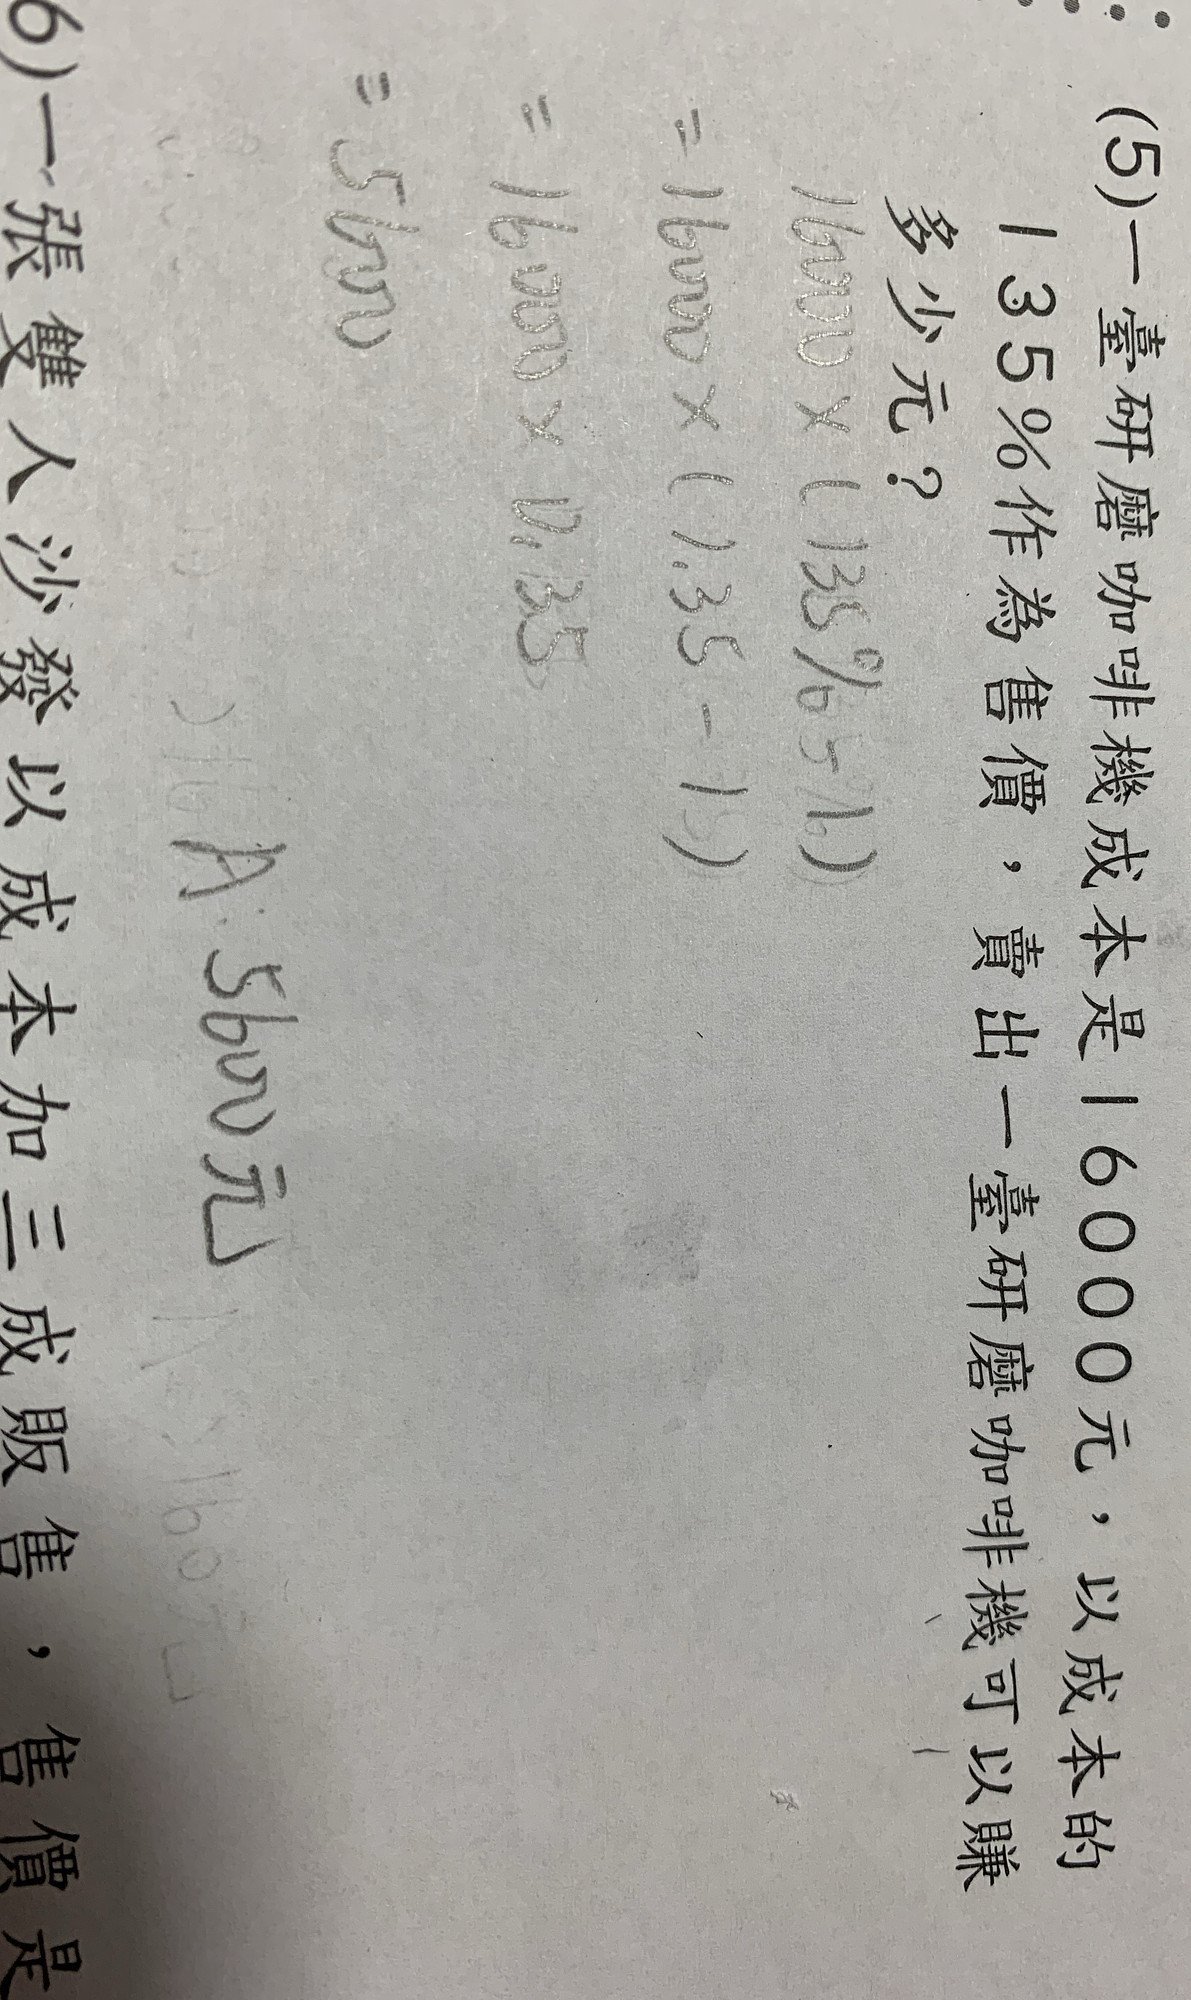 (5)一臺研磨咖啡機成本是16000元，以成本的
135%作為售價，賣出一臺研磨咖啡機可以賺
多少元？
16000×(135%-1)
=16000×(1.35-1)
=16000×0.35
=5600
A:5600元
6)一張雙人沙發以成本加三成販售，售價是